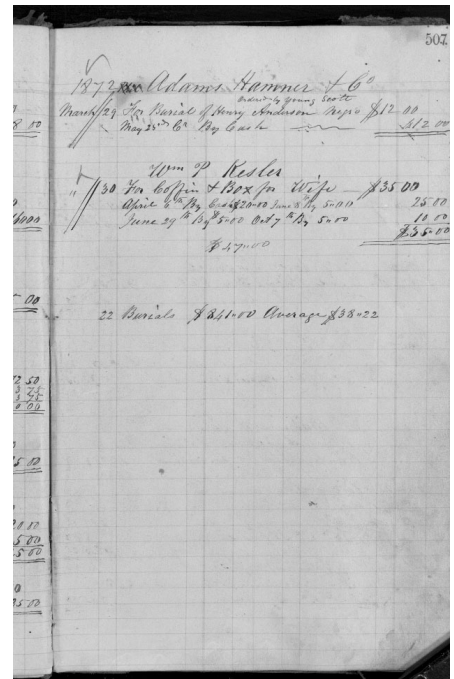 507
1872 Adams Hamner & Co
Order by Young Scott
March 29 For Burial of Henry Anderson Negro $12 00
May 25th Cr By Cash $12 00
Wm P. Kesler
" 30 For Coffin & Box for Wife $35 00
April 6th By Cash $20=00 June 8th By 5=00 25 00
June 29th By $5=00 Oct 7th By 5=00 10 00
$35=00
$47=00
22 Burials $841=00 Average $38=22
8 00
00
72 50
3 75
3 75
5 00
20 00
5 00
5 00
35 00